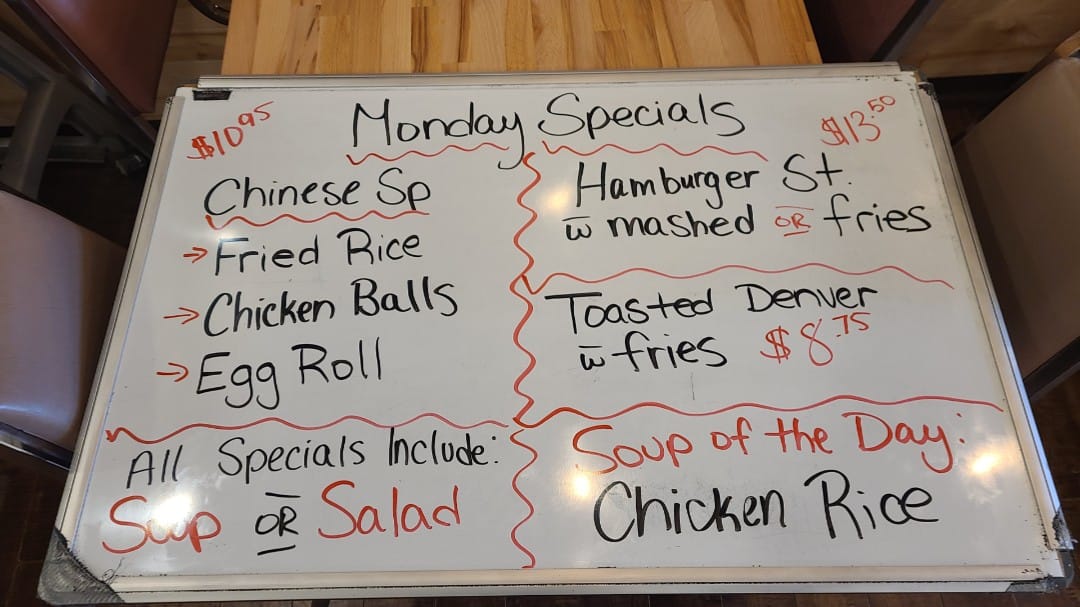 Monday Specials
$10.95
Chinese Sp
→ Fried Rice
→ Chicken Balls
→ Egg Roll
All Specials Include:
Soup OR Salad
$13.50
Hamburger St.
w̅ mashed OR fries
Toasted Denver
w̅ fries $8.75
Soup of the Day:
Chicken Rice